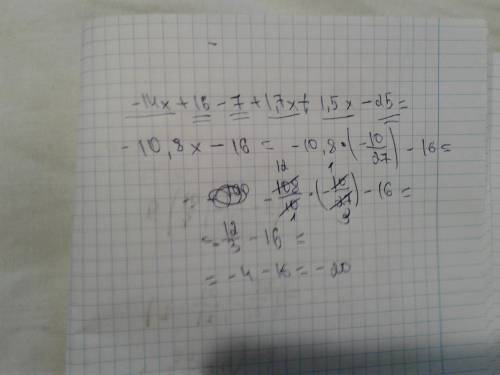 -14x + 16 - 7 + 1,7x + 1,5x - 25 =
-10,8x - 16 = -10,8 · (-10/27) - 16 =
-108/10 · (-10/27) - 16 =
12 1 1 3
= -12/3 - 16 =
= -4 - 16 = -20